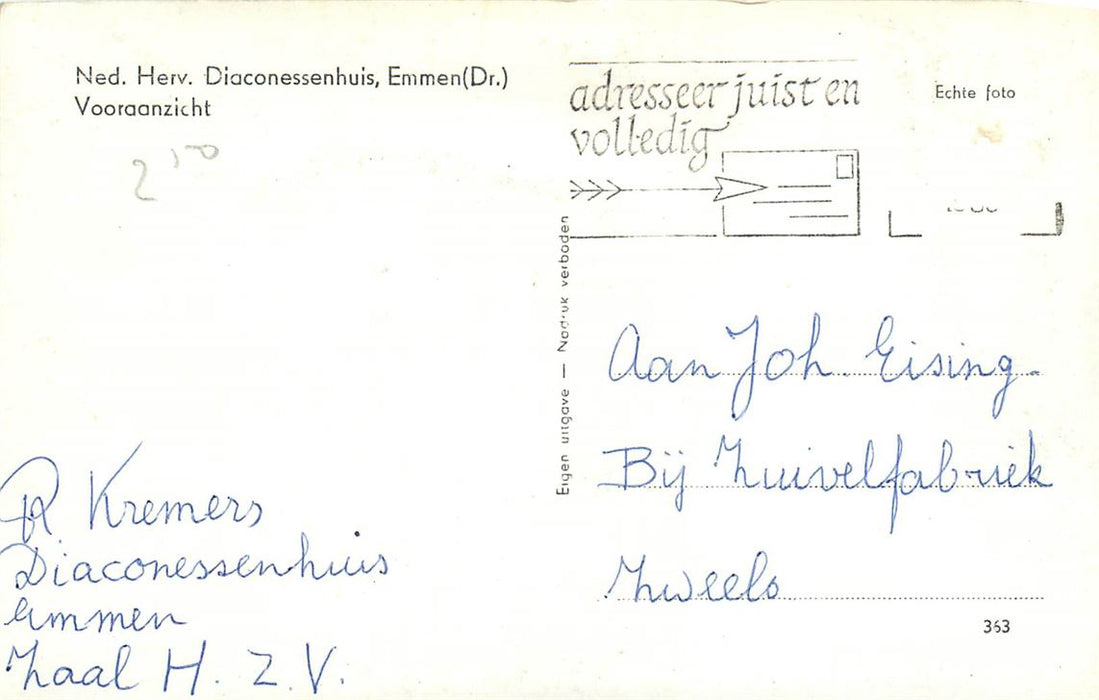 Ned. Herv. Diaconessenhuis, Emmen(Dr.)
Vooraanzicht
2,50
adresseer juist en
volledig
Echte foto
Eigen uitgave — Nadruk verboden
Aan Joh. Eising.
Bij Zuivelfabriek
Zweelo
363
R Kremers
Diaconessenhuis
Emmen
Zaal H. Z. V.